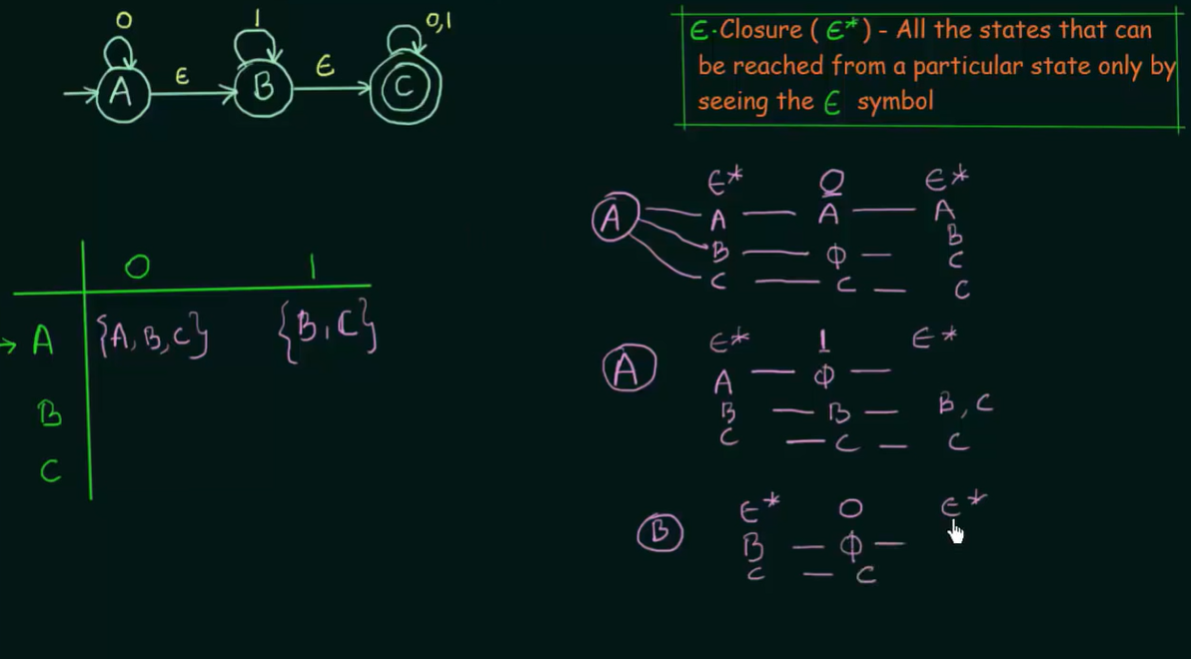 0 1 0,1
A ϵ B ϵ C
ϵ-Closure ( ϵ* ) - All the states that can
be reached from a particular state only by
seeing the ϵ symbol
ϵ* 0 ϵ*
A A — A — A
B — ϕ — B
C
C — C — C
0 1
A {A, B, C} {B, C}
B
C
ϵ* 1 ϵ*
A A — ϕ —
B — B — B, C
C — C — C
ϵ* 0 ϵ*
B B — ϕ —
C — C